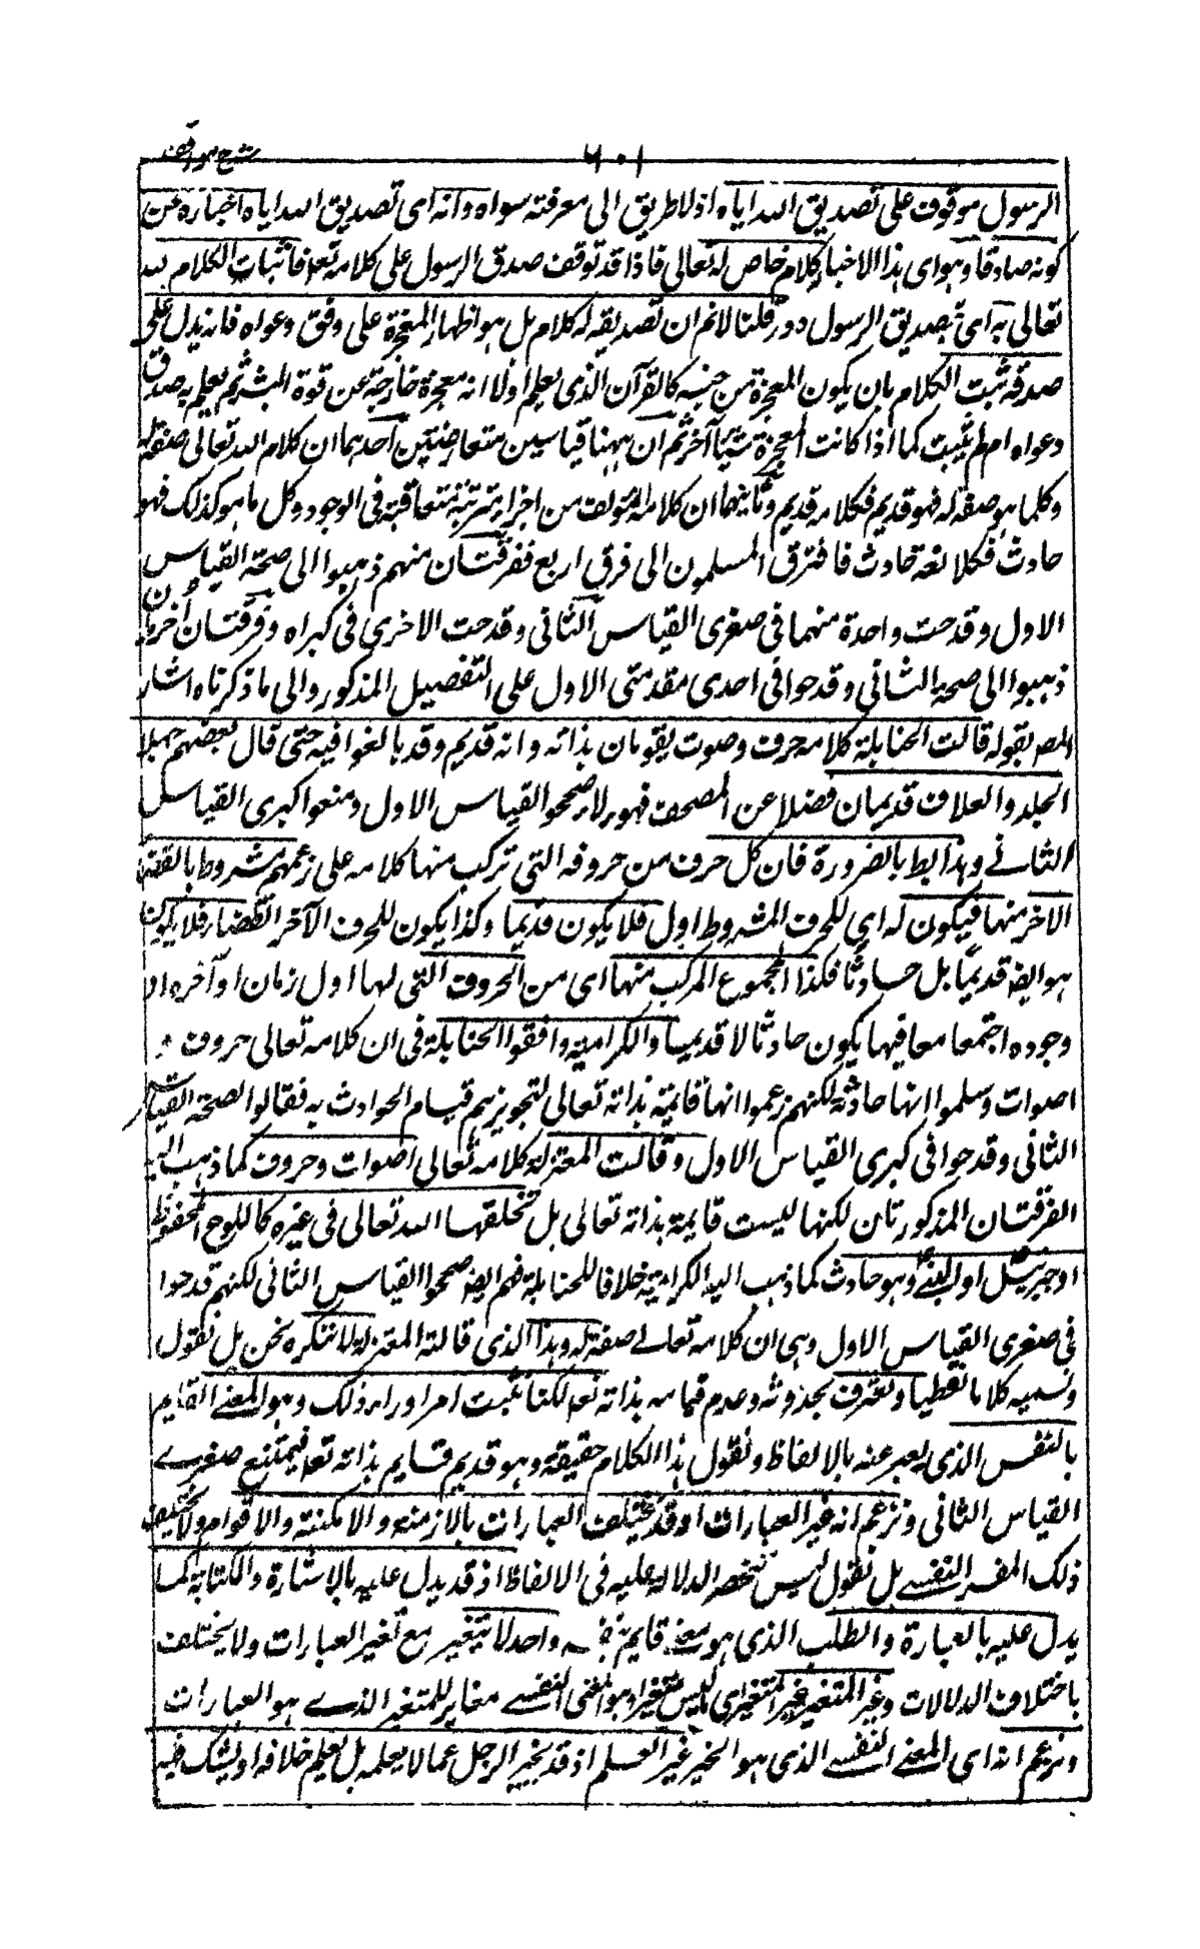 شرح مواقف
٦٠١
الرسول موقوف على تصديق الله اياه اذ لا طريق الى معرفته سواه وانه اى تصديق الله اياه اخباره عن
كونه صادقا وهو اى هذا الاخبار كلام خاص له تعالى فاذا قد توقف صدق الرسول على كلامه تعا فاثبات الكلام لله
تعالى به اى بتصديق الرسول دور قلنا لا نم ان تصديقه له كلام بل هو اظهار المعجزة على وفق دعواه فانه يدل على
صدقه ثبت الكلام بان يكون المعجزة من جنسه كالقرآن الذى يعلم اولا انه معجزة خارجة عن قوة البشر ثم يعلم به صدق
دعواه ام لم يثبت كما اذا كانت المعجزة شيئا آخر ثم ان ههنا قياسين متعارضين احدهما ان كلام الله تعالى صفة له
وكلما هو صفة له فهو قديم فكلامه قديم وثانيهما ان كلامه مؤلف من اجزاء مترتبة متعاقبة فى الوجود وكل ما هو كذلك فهو
حادث فكلامه حادث فافترق المسلمون الى فرق اربع ففرقتان منهم ذهبوا الى صحة القياس
الاول وقدحت واحدة منهما فى صغرى القياس الثانى وقدحت الاخرى فى كبراه وفرقتان اخريان
ذهبوا الى صحة الثانى وقدحوا فى احدى مقدمتى الاول على التفصيل المذكور والى ما ذكرناه اشار
المص بقوله قالت الحنابلة كلامه حرف وصوت يقومان بذاته وانه قديم وقد بالغوا فيه حتى قال بعضهم جهلا
الجلد والغلاف قديمان فضلا عن المصحف فهولاء صححوا القياس الاول ومنعوا كبرى القياس
الثانى وهذا بط بالضرورة فان كل حرف من حروفه التى تركب منها كلامه على زعمهم مشروط بانقضاء
الاخر منها فيكون له اى للحرف المشروط اول فلا يكون قديما وكذا يكون للحرف الآخر انقضاء فلا يكون
هو ايضا قديما بل حادثا فكذا المجموع المركب منها اى من الحروف التى لها اول زمان او آخره او
وجوده اجتمعا معا فيها يكون حادثا لا قديما والكرامية وافقوا الحنابلة فى ان كلامه تعالى حروف و
اصوات وسلموا انها حادثة لكنهم زعموا انها قائمة بذاته تعالى لتجويزهم قيام الحوادث به فقالوا بصحة القياس
الثانى وقدحوا فى كبرى القياس الاول وقالت المعتزلة كلامه تعالى اصوات وحروف كما ذهب اليه
الفرقتان المذكورتان لكنها ليست قايمة بذاته تعالى بل يخلقها الله تعالى فى غيره كاللوح المحفوظ
او جبرئيل او النبى وهو حادث كما ذهب اليه الكرامية خلافا للحنابلة فهم ايضا صححوا القياس الثانى لكنهم قدحوا
فى صغرى القياس الاول وهى ان كلامه تعالى صفة له وهذا الذى قالته المعتزلة لا ننكره نحن بل نقول
ونسميه كلاما لفظيا ونعترف بحدوثه وعدم قيامه بذاته تعا لكنا نثبت امرا وراء ذلك وهو المعنى القايم
بالنفس الذى يعبر عنه بالالفاظ ونقول هذا الكلام حقيقة وهو قديم قايم بذاته تعا فيمتنع صغرى
القياس الثانى ونزعم انه غير العبارات اذ قد يختلف العبارات بالازمنة والامكنة والاقوام ولا يختلف
ذلك المعنى النفسى بل نقول ليس ينحصر الدلالة عليه فى الالفاظ اذ قد يدل عليه بالاشارة والكتابة كما
يدل عليه بالعبارة والطلب الذى هو معنى قايم واحد لا يتغير مع تغير العبارات ولا يختلف
باختلاف الدلالات وغير المتغير غير المتغير اى ما ليس متغيرا وهو المعنى النفسى مغاير للمتغير الذى هو العبارات
ونزعم انه اى المعنى النفسى الذى هو الخبر غير العلم اذ قد يخبر الرجل عما لا يعلمه بل يعلم خلافه او يشك فيه